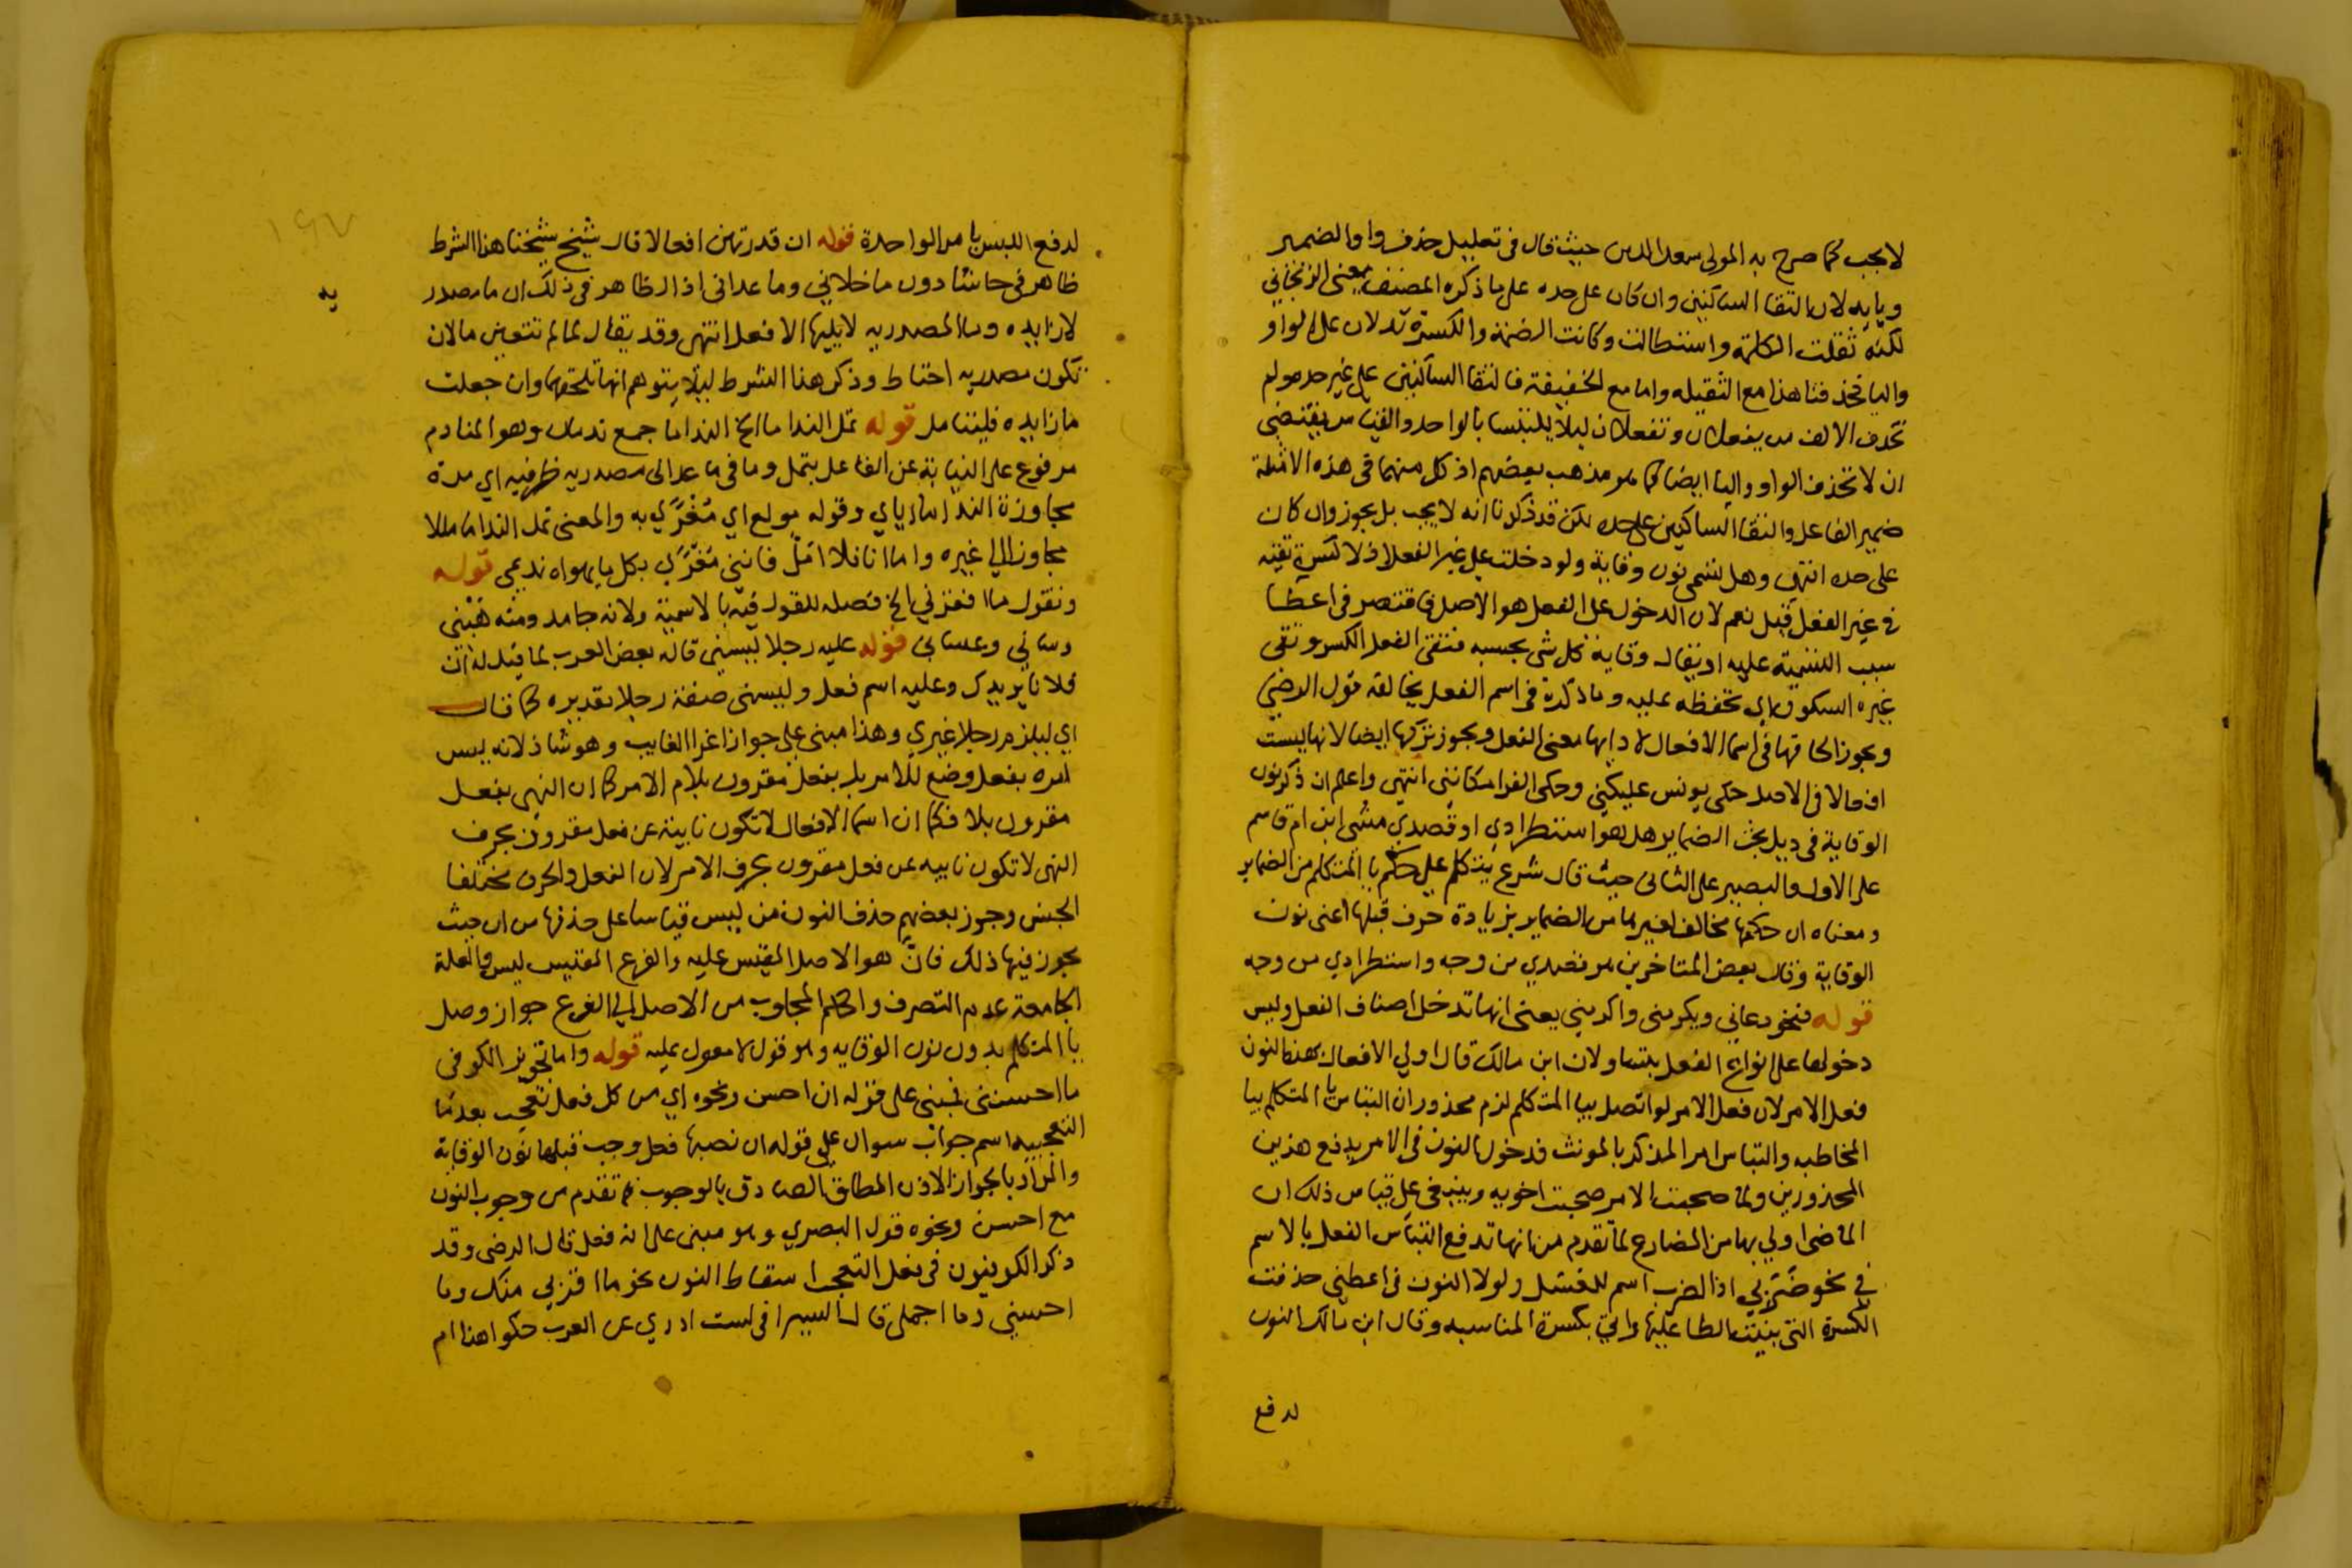 لا يجب كما صرح به المولى سعد الدين حيث قال في تعليل حذف واو الضمير
ويايه لان التقا الساكنين وان كان على حده على ما ذكره المصنف يعني الزنجاني
لكنه ثقلت الكلمة واستطالت وكانت الضمة والكسرة تدلان على الواو
واليا فحذفتا هذا مع الثقيله واما مع الخفيفة فالتقا الساكنين على غير حده ولم
تحذف الالف من يفعلان وتفعلان ليلا يلتبسا بالواحد والقياس يقتضي
ان لا تحذف الواو واليا ايضا كما هو مذهب بعضهم اذ كل منهما في هذه الامثلة
ضمير الفاعل والتقا الساكنين على حده لكن قد ذكرنا انه لا يجب بل يجوز وان كان
على حده انتهى وهل تسمى نون وقاية ولو دخلت على غير الفعل اذ لا كسرة تقيه
في غير الفعل قيل نعم لان الدخول على الفعل هو الاصل فاقتصر في اعطا
سبب التسمية عليه او يقال وقاية كل شي بحسبه فتقي الفعل الكسر وتقي
غيره السكون اي تحفظه عليه وما ذكره في اسم الفعل يخالفه قول الرضي
ويجوز الحاقها في اسما الافعال لادايها معنى الفعل ويجوز تركها ايضا لانها ليست
افعالا في الاصل حكى يونس عليكني وحكى الفرا مكانني انتهى واعلم ان ذكر نون
الوقاية في ذيل بحث الضماير هل هو استطرادي او قصدي مشى ابن ام قاسم
على الاول والبصير على الثاني حيث قال شرع يتكلم على حكم يا المتكلم من الضماير
ومعناه ان حكمها مخالف لغيرها من الضماير بزيادة حرف قبلها اعني نون
الوقاية وقال بعض المتاخرين هو قصدي من وجه واستطرادي من وجه
قوله فنحو دعاني ويكرمني واكرمني يعني انها تدخل اصناف الفعل وليس
دخولها على انواع الفعل بلتساو لان ابن مالك قال اولي الافعال بهذا النون
فعل الامر لان فعل الامر لو اتصل بيا المتكلم لزم محذوران التباس يا المتكلم بيا
المخاطبه والتباس امر المذكر بالمونث فدخول النون في الامر يدفع هذين
المحذورين ولما صحبت الامر صحبت اخويه وينبغي على قياس ذلك ان
الماضي اولي بها من المضارع لما تقدم من انها تدفع التباس الفعل بالاسم
في نحو ضربي اذ الضرب اسم للعسل ولولا النون في اعطني حذفت
الكسرة التي بنيت الطا عليها واتي بكسرة المناسبه وقال ابن مالك النون
لدفع
لدفع اللبس يامر الواحدة قوله ان قدرتهن افعالا قال شيخ شيخنا هذا الشرط
ظاهر في حاشا دون ما خلاني وما عداني اذ الظاهر في ذلك ان ما مصدر
يه
لا زايده وما المصدريه لا يليها الا فعل انتهى وقد يقال لما لم تتعين ما لان
تكون مصدريه احتاط وذكر هذا الشرط ليلا يتوهم انها تلحقها وان جعلت
ما زايده فليتامل قوله تمل الندا ما الخ النداما جمع ندمان وهو المنادم
مرفوع على النيابة عن الفاعل بتمل وما في ما عداني مصدريه ظرفيه اي مدة
مجاوزة النداما اياي وقوله مولع اي مُغْرًى به والمعنى تمل النداما مللا
مجاوزا لي غيره واما انا فلا امل فانني مغرًى بكل ما يهواه نديمي قوله
ونقول ما افقرني الخ فصله للقول فيه بالاسمية ولانه جامد ومنه هَبْني
وساني وعساني قوله عليه رجلا ليسني قاله بعض العرب لما قيل له ان
فلانا يريدك وعليه اسم فعل وليسني صفة رجلا تقديره كما قال
اي ليلزم رجلا غيري وهذا مبني على جواز اغرا الغايب وهو شاذ لانه ليس
امره بفعل وضع للامر بل بفعل مقرون بلام الامر كما ان النهي بفعل
مقرون بلا فكما ان اسما الافعال لا تكون نايبة عن فعل مقرون بحرف
النهي لا تكون نايبه عن فعل مقرون بحرف الامر لان الفعل والحرف مختلفا
الجنس وجوز بعضهم حذف النون من ليس قياسا على حذفها من ان حيث
يجوز فيها ذلك فانّ هو الاصل المقيس عليه والفرع المقيس ليس والعلة
الجامعة عدم التصرف والحكم المجاوب من الاصل الي الفرع جواز وصل
يا المتكلم بدون نون الوقايه وهو قول لا معول عليه قوله واما تجويز الكوفي
ما احسنني فبني على قوله ان احسن ونحوه اي من كل فعل تعجب بعد ما
التعجبيه اسم جواب سوال على قوله ان نصبها فعل وجب قبلها نون الوقاية
والمراد بالجواز الاذن المطلق الصادق بالوجوب فما تقدم من وجوب النون
مع احسن ونحوه قول البصري وهو مبني على انه فعل قال الرضي وقد
ذكر الكوفيون في فعل التعجب اسقاط النون نحو ما اقربي منك وما
احسني وما اجملي قال السيرافي لست ادري عن العرب حكوا هذا ام